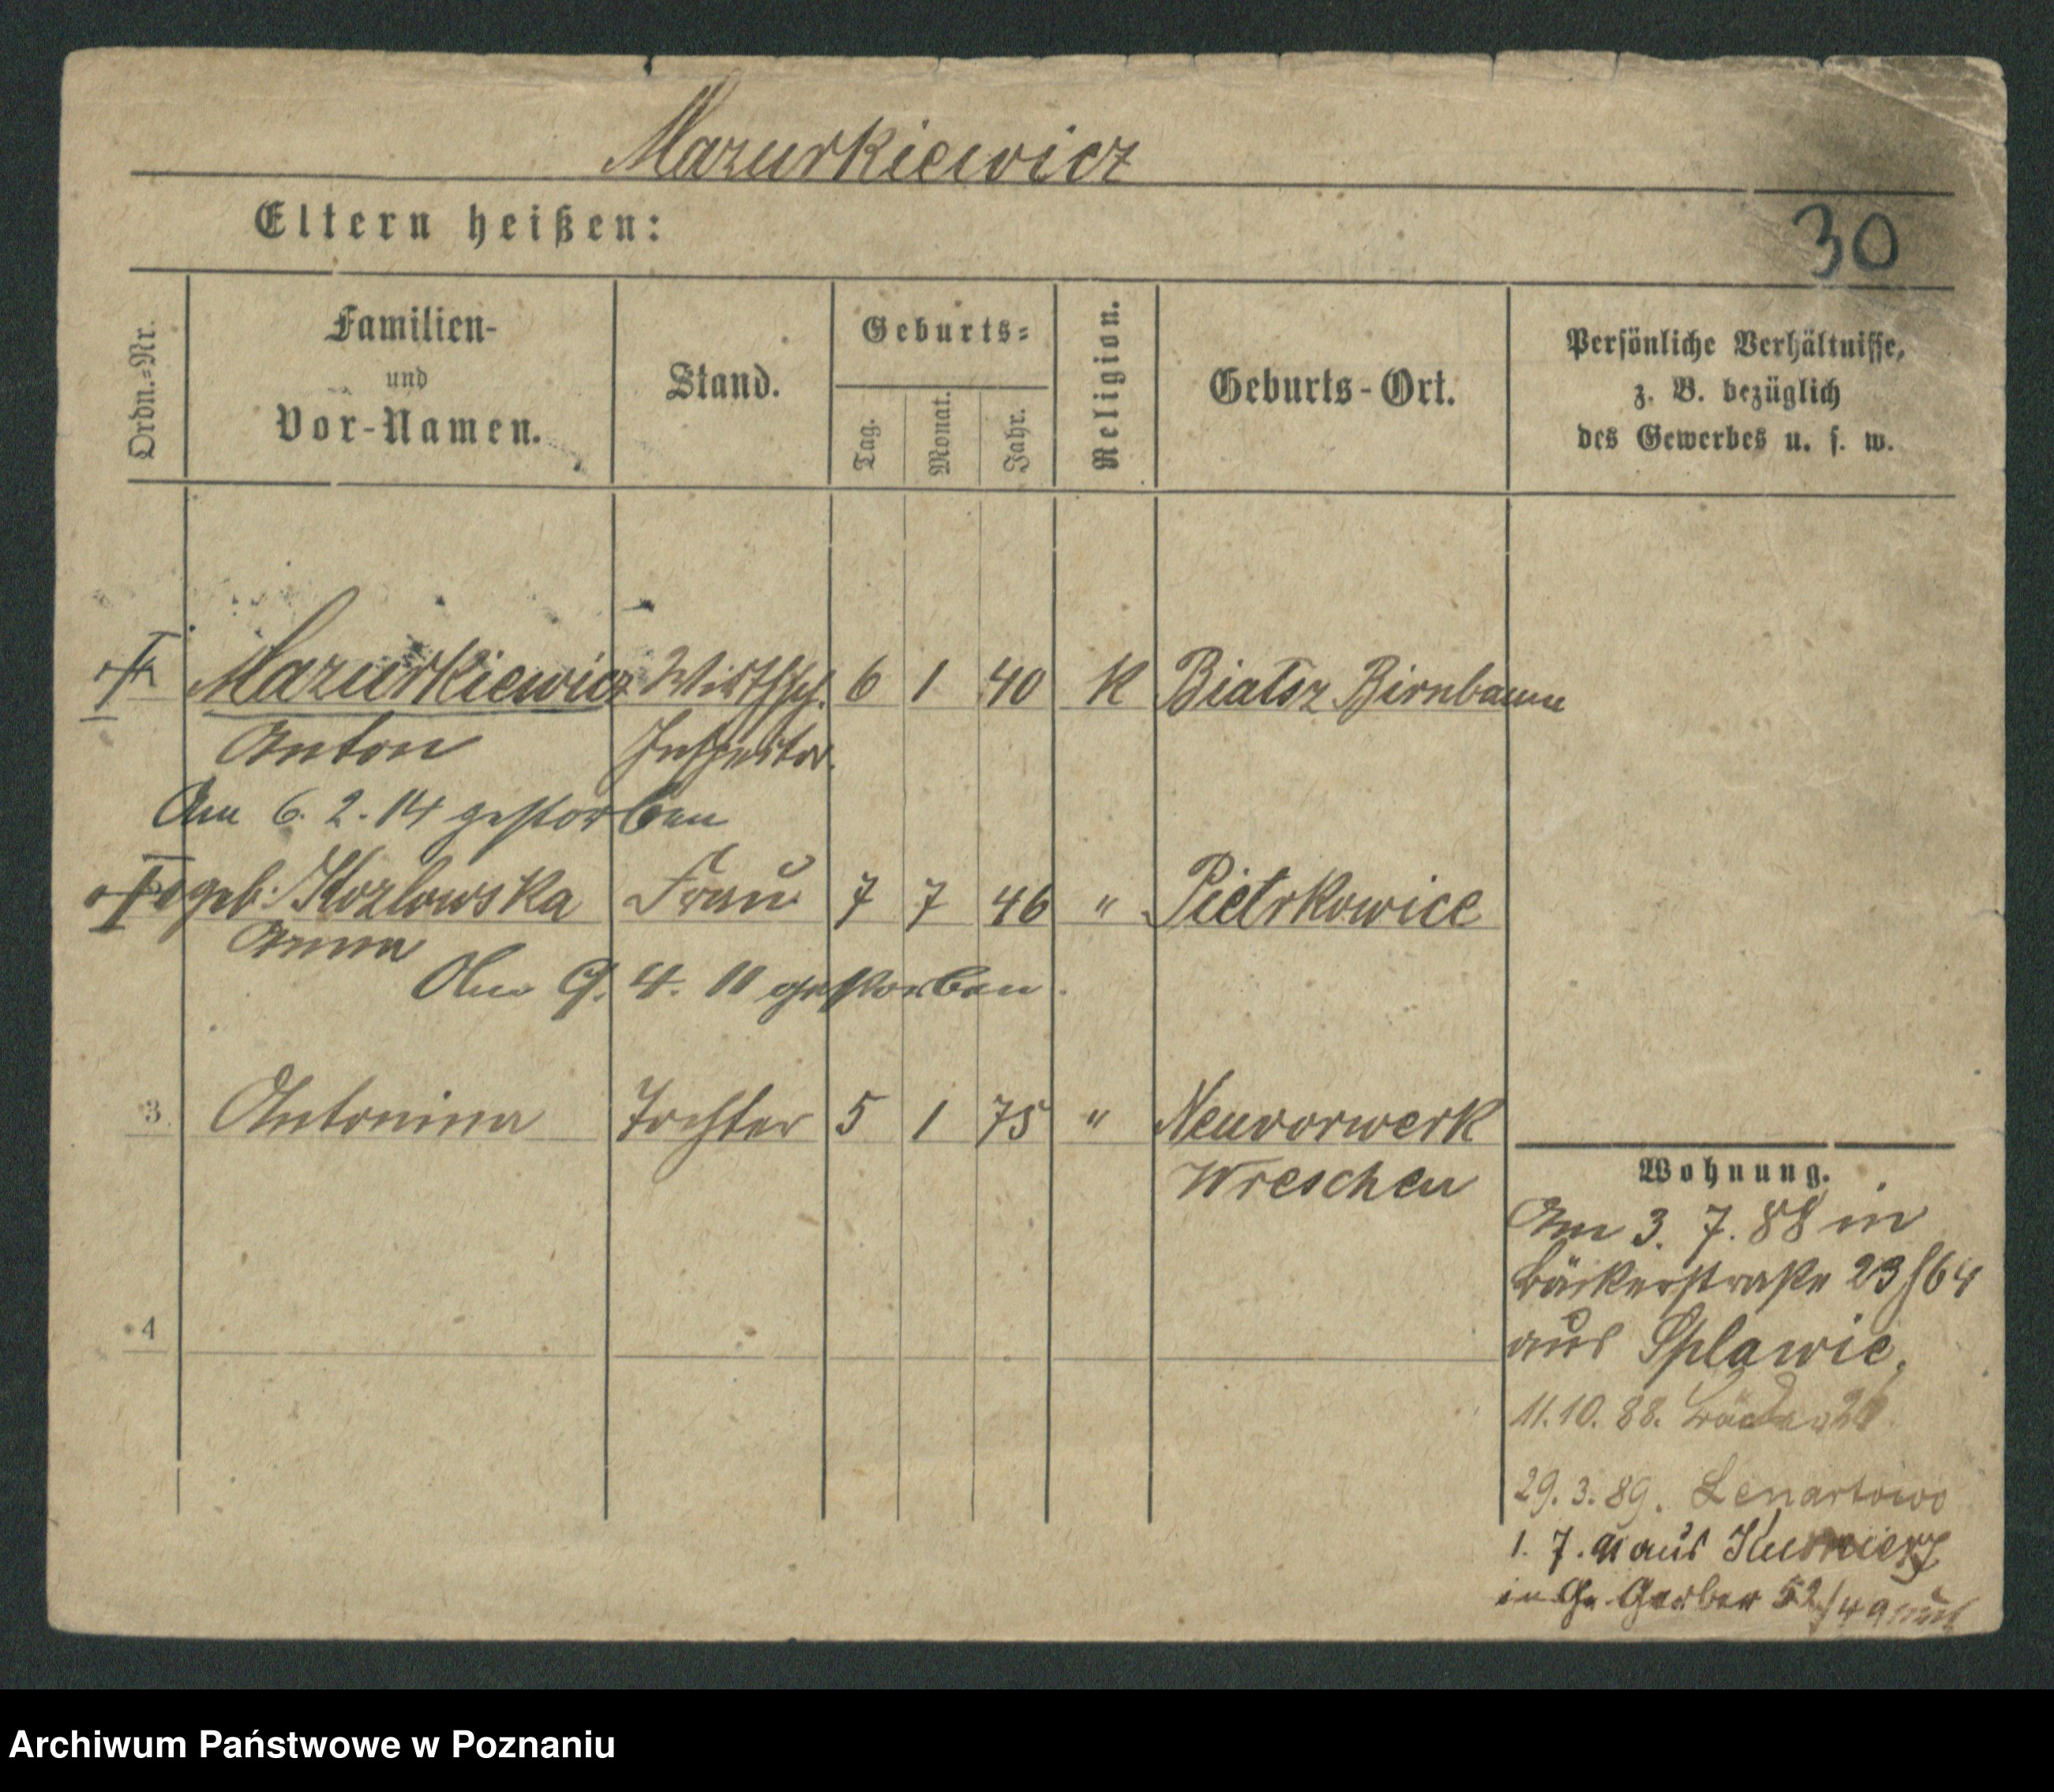 Mazurkiewicz
Eltern heißen:
30
Ordn.-Nr.
Familien-
und
Vor-Namen.
Stand.
Geburts-
Tag.
Monat.
Jahr.
Religion.
Geburts-Ort.
Persönliche Verhältnisse,
z. B. bezüglich
des Gewerbes u. s. w.
Mazurkiewicz Wirthsch. 6 1 40 K Birnbaum
Anton Inspektor.
Am 6. 2. 14 gestorben
geb. Kozlowska Frau 7 7 46 " Pietrkowice
Anna
Am 9. 4. 11 gestorben.
3 Antonina Tochter 5 1 75 " Neuvorwerk
Wreschen
4
Wohnung.
Am 3. 7. 88 in
Bäckerstraße 23/64
aus Splawie,
11.10. 88.
29. 3. 89. Lenartowo
1. 7. 91 aus
in Gr. Gerber 52/49
Archiwum Państwowe w Poznaniu